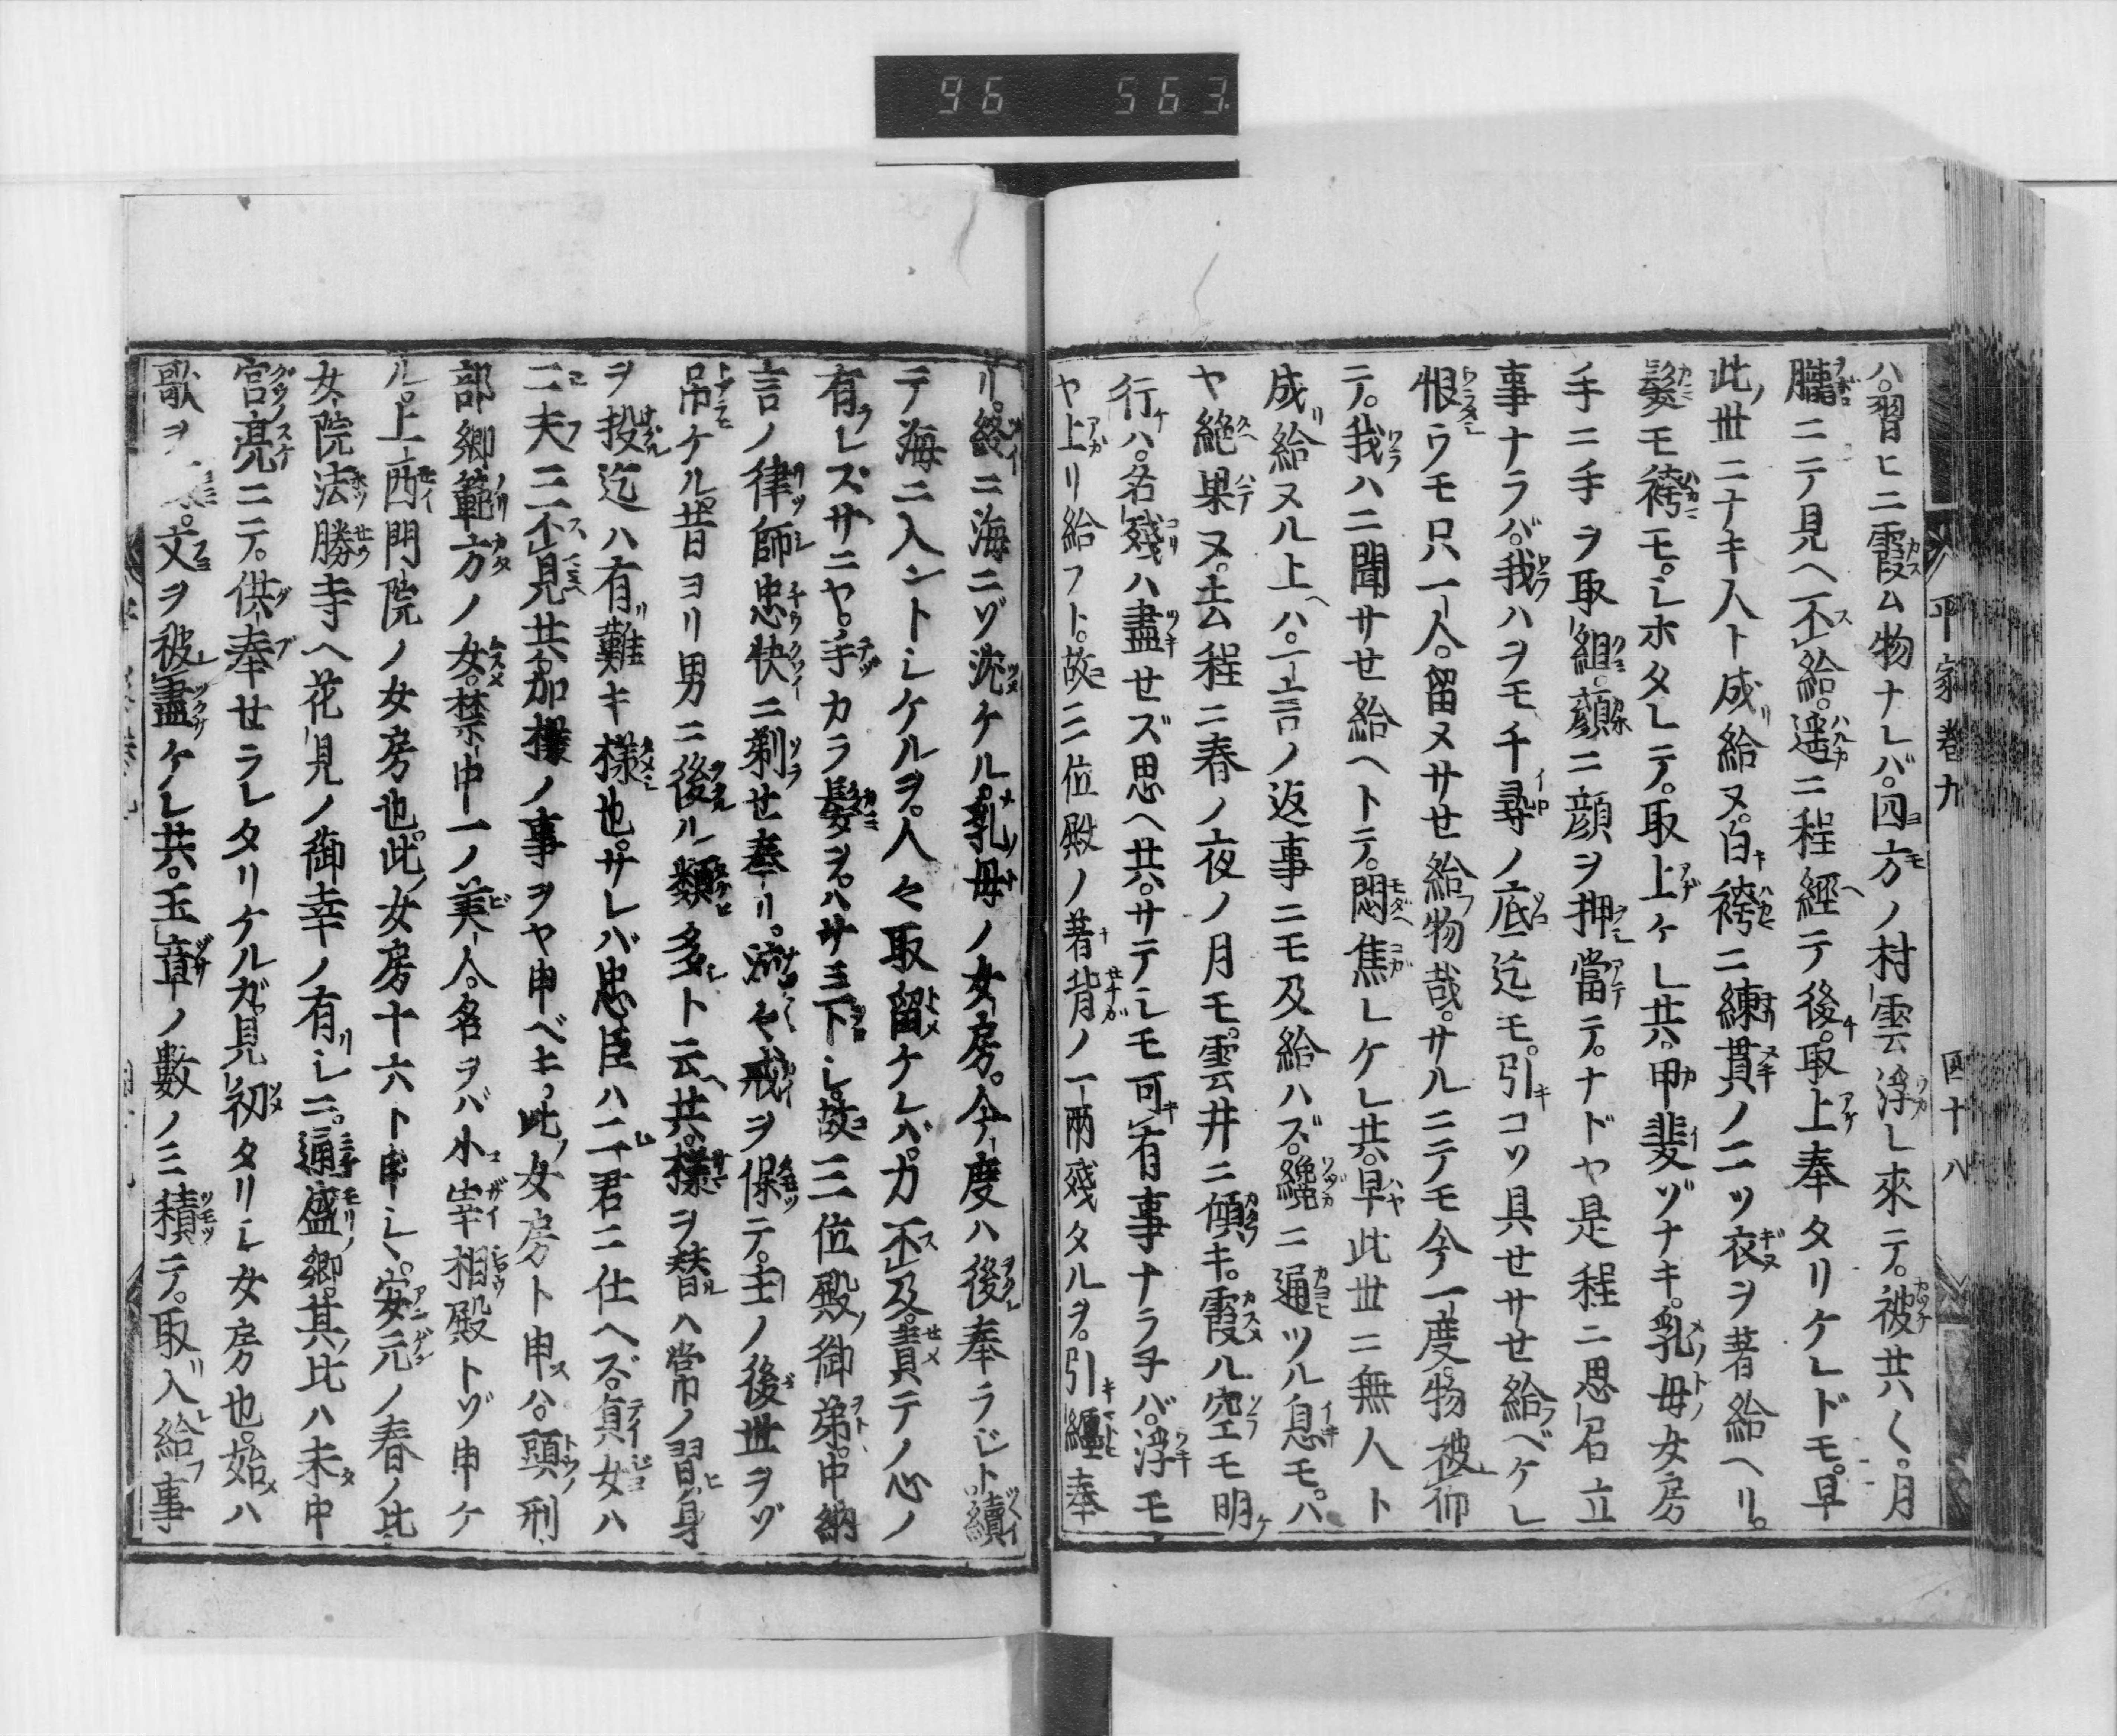 96 563
平家巻九 四十八
ハ。習ヒニ霞ム物ナレバ。四方ノ村雲浮レ來テ。被共〱。月
朧ニテ見ヘ不給。遥ニ程經テ後。取上奉タリケレドモ。早
此世ニナキ人ト成給ヌ。白袴ニ練貫ノ二ツ衣ヲ著給ヘリ。
髪モ袴モ。シホタレテ。取上ケレ共。甲斐ゾナキ。乳母女房
手ニ手ヲ取組。顔ニ顔ヲ押當テ。ナドヤ是程ニ思召立
事ナラバ。我ハヲモ千尋ノ底迄モ。引コソ具セサせ給ベケレ
恨ウモ只一人。留ヌサせ給物哉。サルニテモ今一度。物被仰
テ。我ハニ聞サせ給ヘトテ。悶焦レケレ共。早此世ニ無人ト
成給ヌル上ハ。一言ノ返事ニモ及給ハズ。纔ニ通ツル息モ。ハ
ヤ絶果ヌ。去程ニ春ノ夜ノ月モ。雲井ニ傾キ。霞ル空モ明
行ハ。名殘ハ盡せズ思ヘ共。サテシモ可有事ナラ子バ。浮モ
ヤ上リ給フト。故三位殿ノ著背ノ一兩殘タルヲ。引纏奉
リ。終ニ海ニゾ沈ケル。乳母ノ女房。今度ハ後奉ラジト。續
テ海ニ入ントシケルヲ。人々取留ケレバ。力不及。責テノ心ノ
有レズサニヤ。手カラ髪ヲ。ハサミ下シ。故三位殿ノ御弟。中納
言ノ律師忠快ニ剃せ奉リ。流々戒ヲ保テ。主ノ後世ヲゾ
吊ケル。昔ヨリ男ニ後ル類多ト云共。樣ヲ替ハ常ノ習ヒ。身
ヲ投迄ハ有難キ樣也。サレバ忠臣ハ二君ニ仕ヘズ。貞女ハ
二夫ニ不見共。加樣ノ事ヲヤ申ベキ。此女房ト申ハ。頭刑
部卿範方ノ女。禁中一ノ美人。名ヲバ小宰相殿トゾ申ケ
ル。上西門院ノ女房也。此女房十六ト申シヽ。安元ノ春ノ比
女院法勝寺ヘ花見ノ御幸ノ有シニ。通盛卿。其比ハ未中
宮亮ニテ。供奉せラレタリケルガ。見初タリシ女房也。始ハ
歌ヲ 文ヲ被盡ケレ共。玉章ノ數ノミ積テ。取入給事